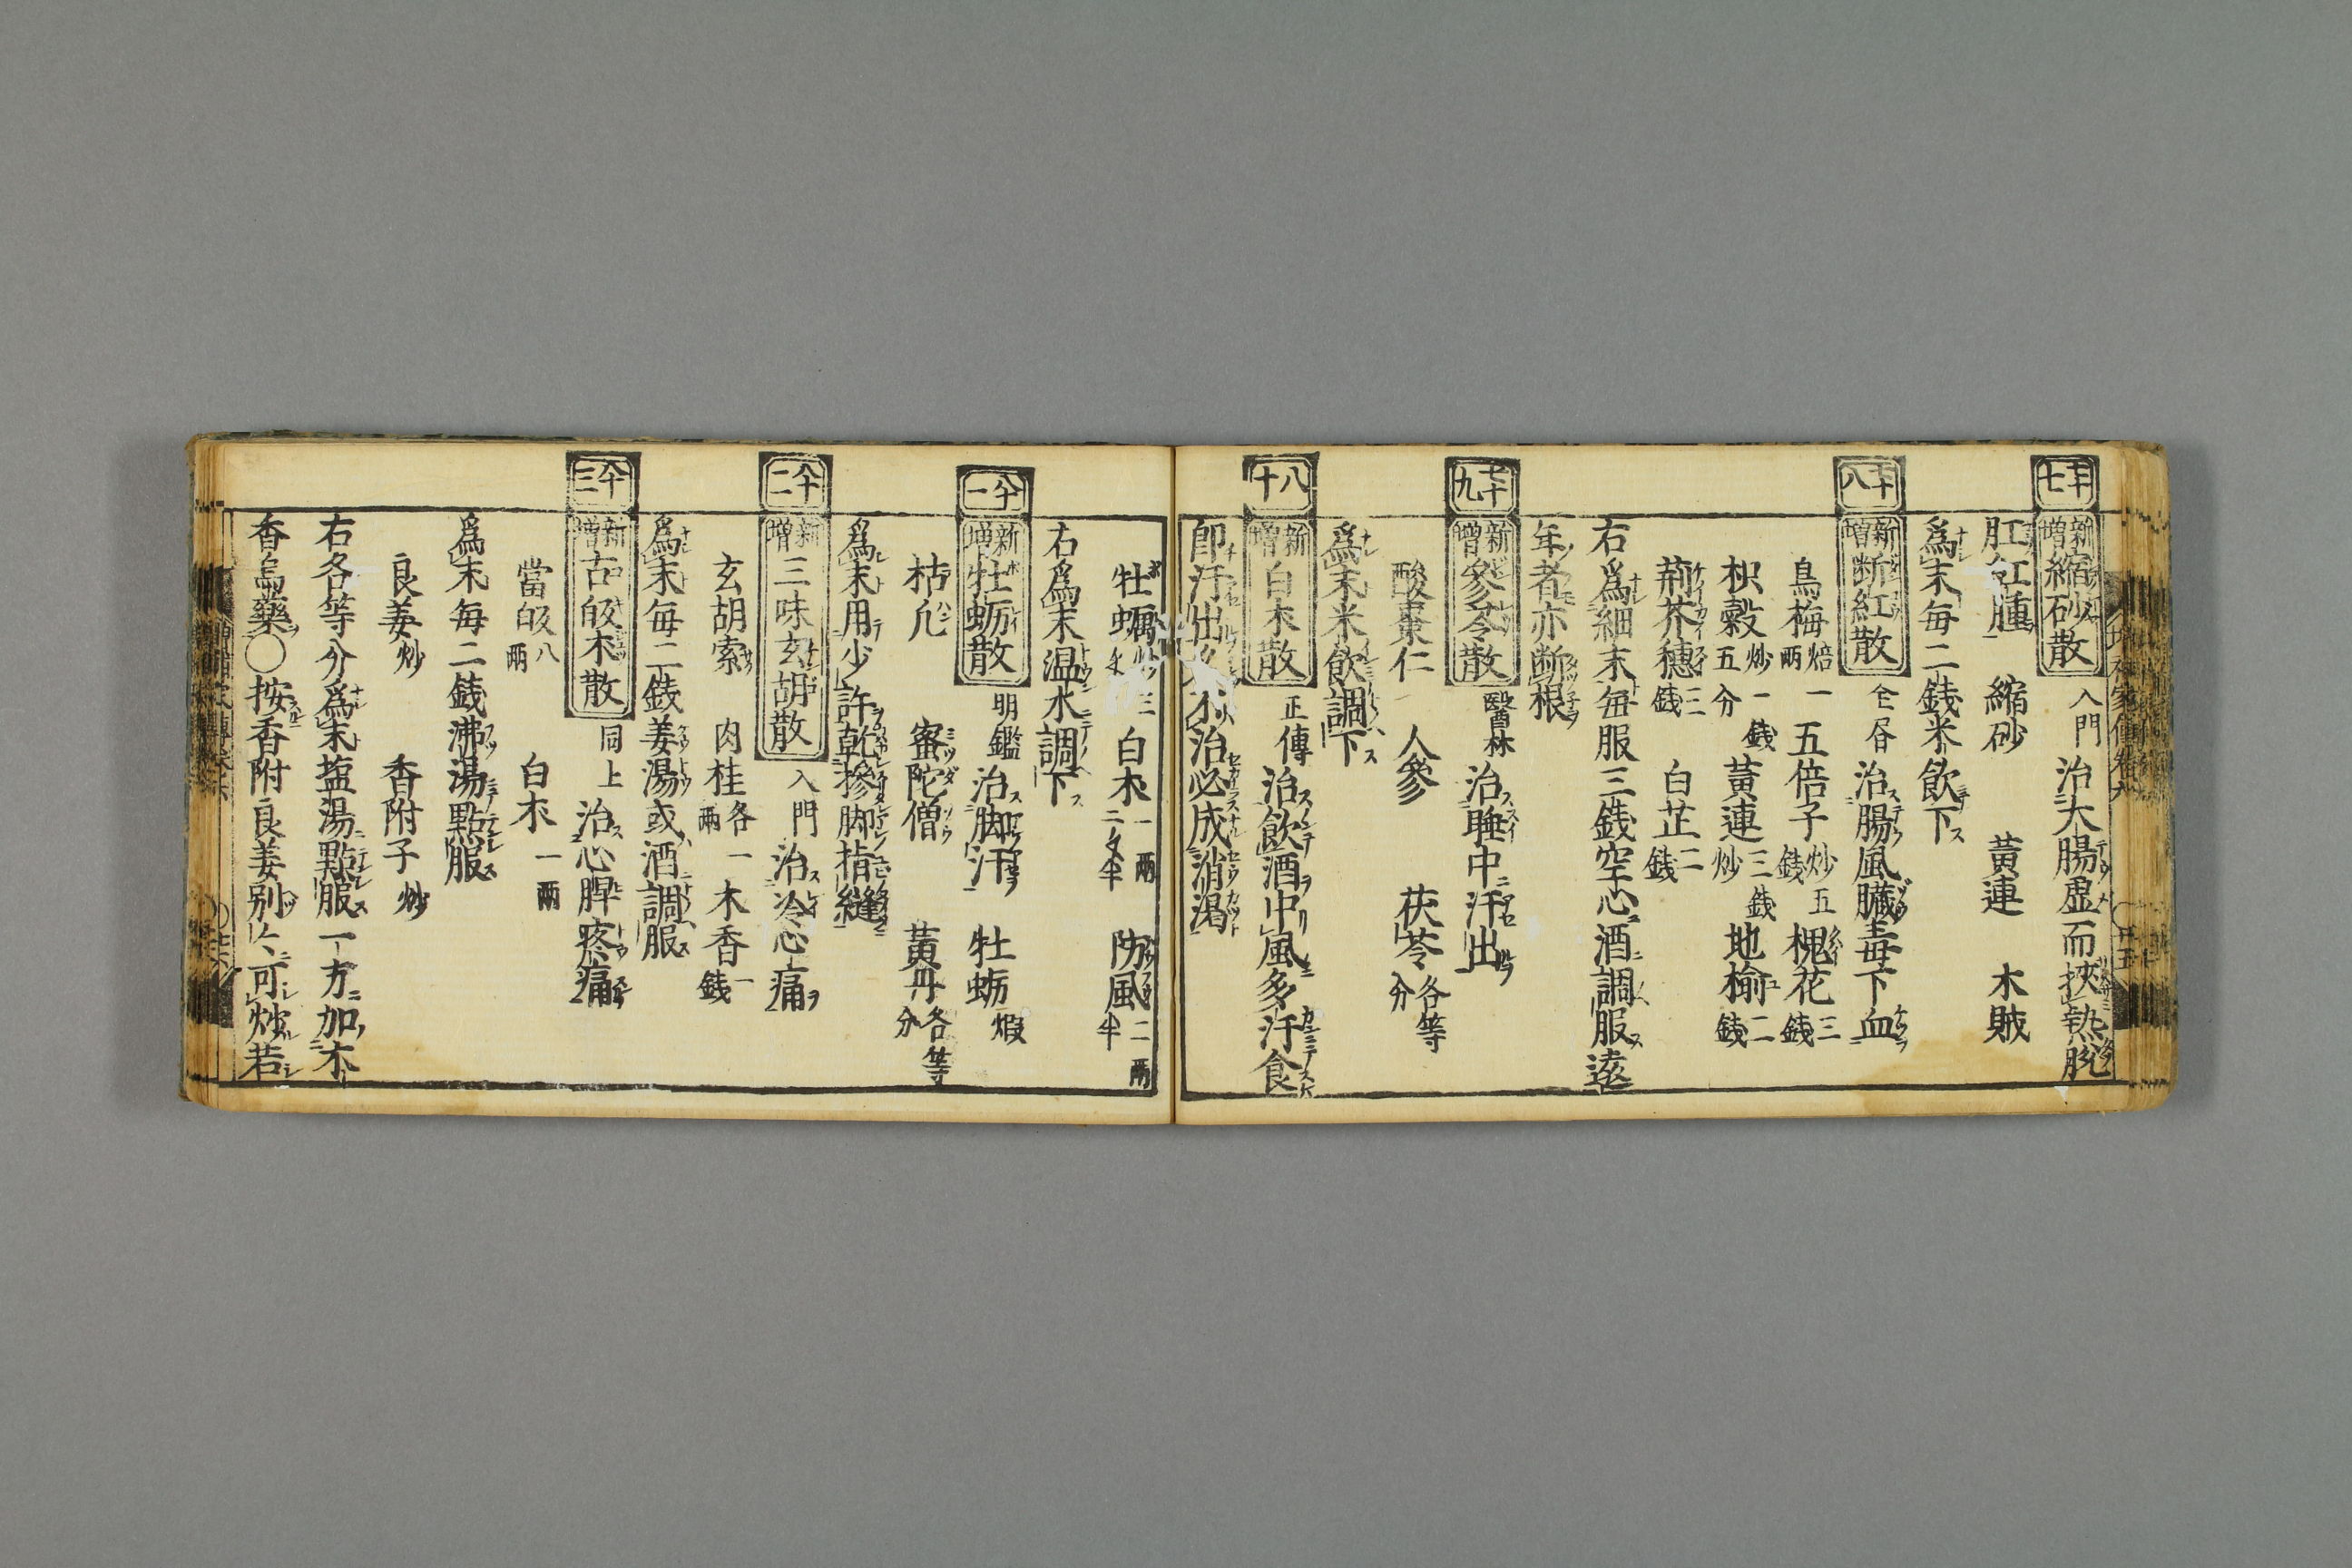 七十七 新増 縮砂散 入門 治大腸虚而挾熱脫
肛紅腫 縮砂 黃連 木賊
爲末毎二錢米飲下
七十八 新増 断紅散 仝 治腸風臓毒下血
烏梅焙一兩 五倍子炒五錢 槐花三錢
枳穀炒一錢五分 黃連炒三錢 地榆二錢
荊芥穗三錢 白芷二錢
右爲細末毎服三錢空心酒調服遠
年者亦断根
七十九 新増 參苓散 醫林 治睡中汗出
酸棗仁 人參 茯苓各等分
爲末米飲調下
八十 新増 白朮散 正傳 治飲酒中風多汗食
即汗出多不治必成消渇
牡蠣炒三 白朮一兩二匁半 防風二兩半
右爲末温水調下
八十一 新増 牡蛎散 明鑑 治脚汗 牡蛎煅
枯凢 蜜陀僧 黃丹各等分
爲末用少許乾摻脚指縫
八十二 新増 三味玄胡散 入門 治冷心痛
玄胡索 肉桂各一兩 木香一錢
爲末毎二錢姜湯或酒調服
八十三 新増 古皈朮散 同上 治心脾疼痛
當皈八兩 白朮一兩
爲末毎二錢沸湯點服
良姜炒 香附子炒
右各等分爲末塩湯點服一方加木
香烏藥〇按香附良姜別々可炒若